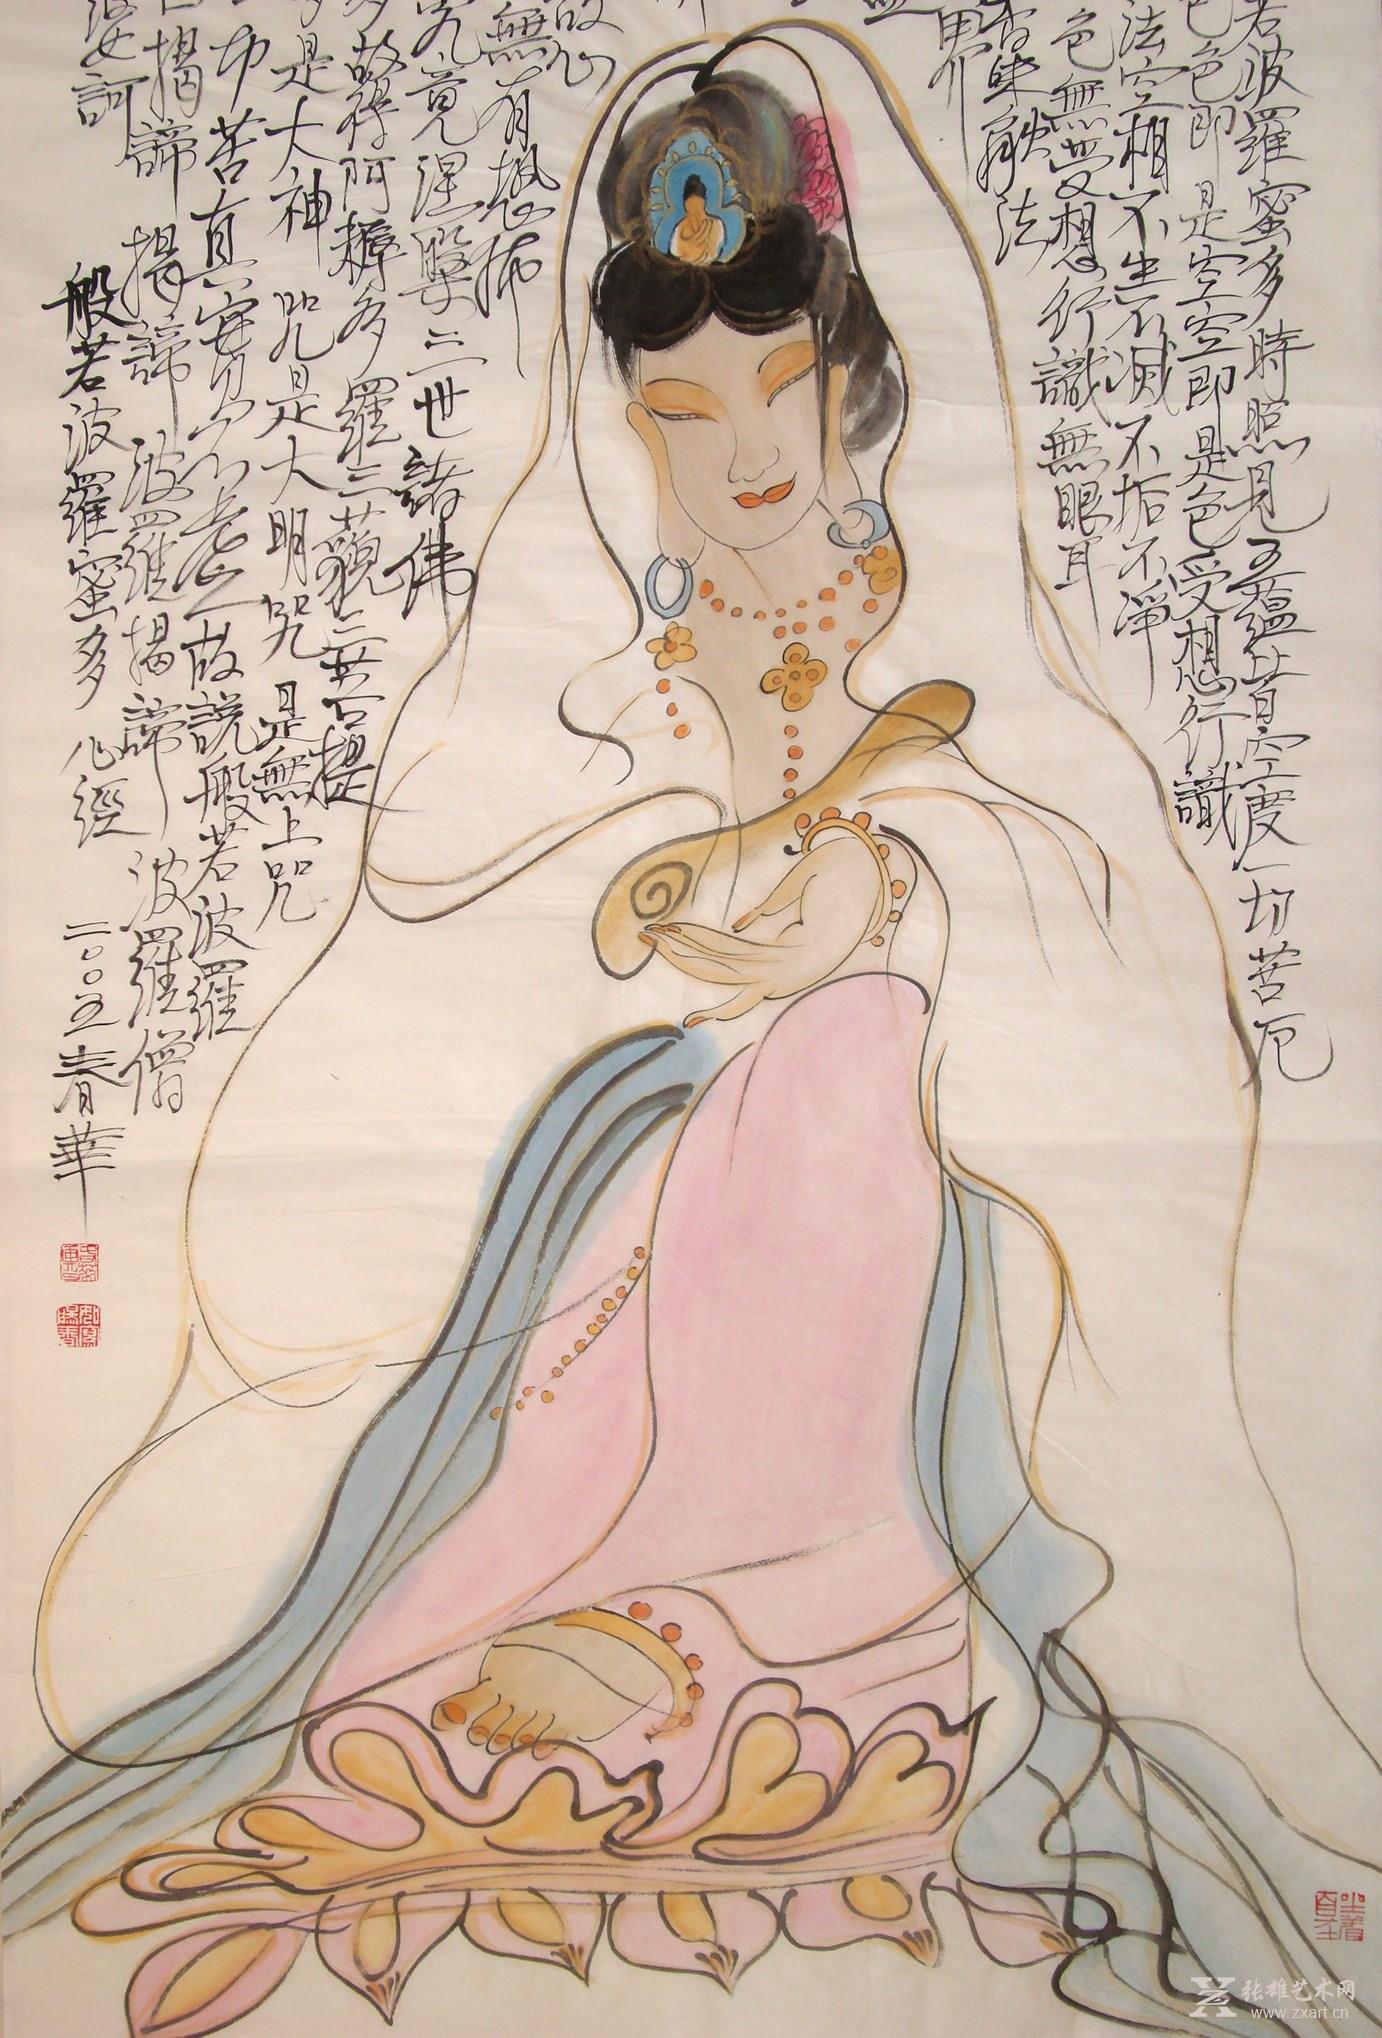 若波羅蜜多時照見五蘊皆空度一切苦厄
色色即是空空即是色受想行識
法空相不生不滅不垢不淨
色無受想行識無眼耳
香味觸法
界
故心
無有恐怖
究竟涅槃三世諸佛
多故得阿耨多羅三藐三菩提
是大神咒是大明咒是無上咒
切苦真實不虛故說般若波羅
曰揭諦揭諦波羅揭諦波羅僧
婆訶
般若波羅蜜多心經
二〇〇五春華
张雄艺术网
www.zxart.cn